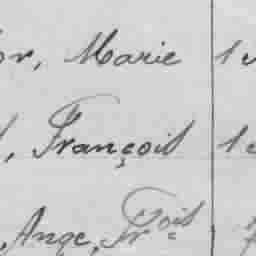 or, Marie 1
, François 1
, Ange, Frçois